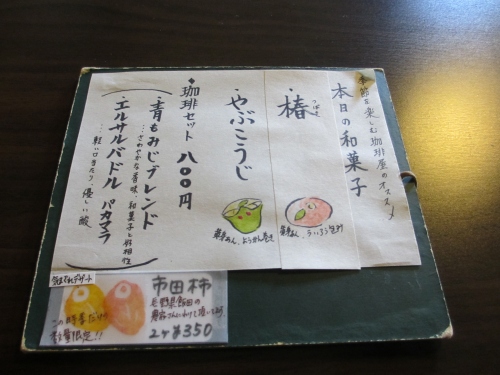 季節を楽しむ珈琲屋のオススメ
本日の和菓子
つばき
・椿
黄身あん、ういろう包み
・やぶこうじ
黄身あん、ようかん巻き
◆珈琲セット 八〇〇円
・青もみじブレンド
…さわやかな香味、和菓子と好相性
・エルサルバドル パカマラ
…軽い口当たり、優しい酸
市田柿
長野県飯田の
農家さんにわけて頂いてます。
2ヶ¥350
この時季だけの
数量限定!!